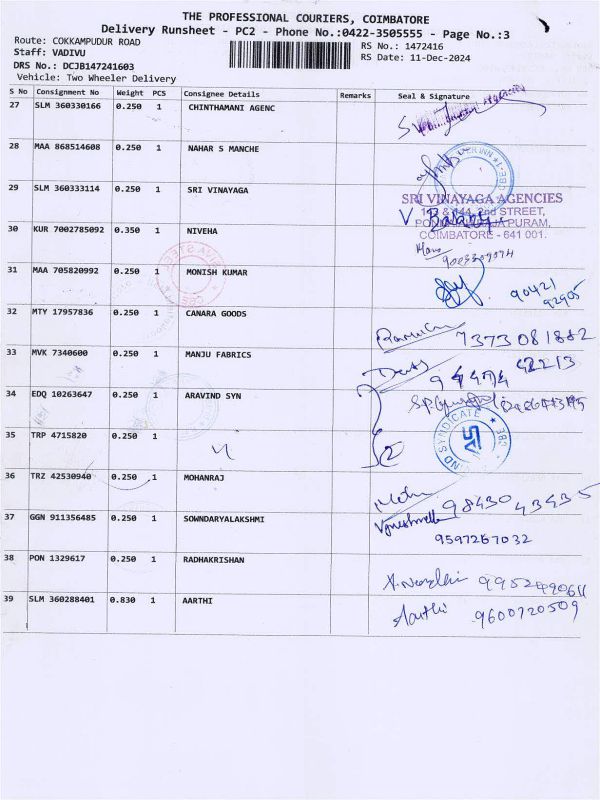 THE PROFESSIONAL COURIERS, COIMBATORE
Delivery Runsheet - PC2 - Phone No.:0422-3505555 - Page No.:3
Route: COKKAMPUDUR ROAD RS No.: 1472416
Staff: VADIVU RS Date: 11-Dec-2024
DRS No.: DCJB147241603
Vehicle: Two Wheeler Delivery
S No Consignment No Weight PCS Consignee Details Remarks Seal & Signature
27 SLM 360330166 0.250 1 CHINTHAMANI AGENC
28 MAA 868514608 0.250 1 NAHAR S MANCHE
29 SLM 360333114 0.250 1 SRI VINAYAGA
SRI VINAYAGA AGENCIES
2nd STREET,
PURAM,
COIMBATORE - 641 001.
30 KUR 7002785092 0.350 1 NIVEHA
31 MAA 705820992 0.250 1 MONISH KUMAR
90421
92905
32 MTY 17957836 0.250 1 CANARA GOODS
7373081882
33 MVK 7340600 0.250 1 MANJU FABRICS
42213
34 EDQ 10263647 0.250 1 ARAVIND SYN
SYNDICATE
CBE
35 TRP 4715820 0.250 1
36 TRZ 42530940 0.250 1 MOHANRAJ
9843043435
37 GGN 911356485 0.250 1 SOWNDARYALAKSHMI
9597267032
38 PON 1329617 0.250 1 RADHAKRISHAN
39 SLM 360288401 0.830 1 AARTHI Aarthi 9600720509